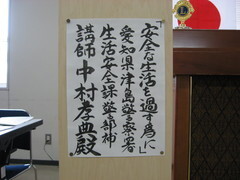 「安全な生活を過す為に」
愛知県津島警察署
生活安全課警部補
講師中村孝典殿